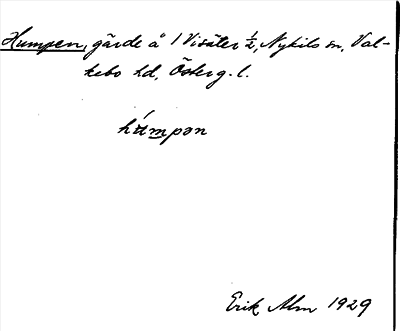 Humpen, gärde å 1 Visäter ½, Nykils sn, Val-
kebo hd, Österg. l.
Erik Alm 1929